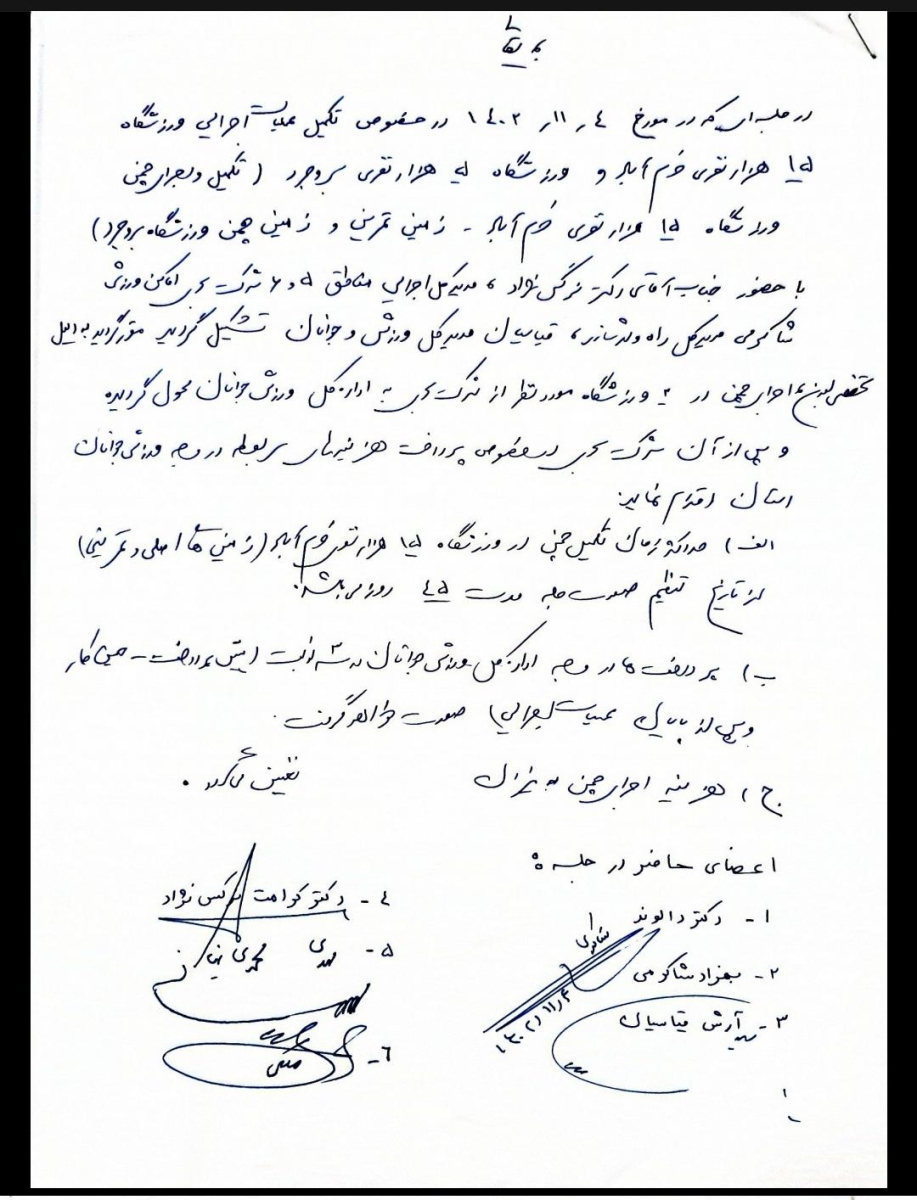 در جلسه‌ای که در مورخ ۱۴۰۲/۱۱/۰۴ در خصوص تکمیل عملیات اجرایی ورزشگاه
۱۵ هزار نفری خرم آباد و ورزشگاه ۵ هزار نفری بروجرد (تکمیل و اجرای چمن
ورزشگاه ۱۵ هزار نفری خرم آباد - زمین تمرین و زمین چمن ورزشگاه بروجرد)
با حضور جناب آقای دکتر نرگس نژاد، مدیرکل اجرایی مناطق ۵ و ۶ شرکت اماکن ورزشی
شاکرمی مدیرکل راه و شهرسازی، قیاسیان مدیرکل ورزش و جوانان تشکیل گردید مقرر گردید به دلیل
تخصصی بودن اجرای چمن در ۲ ورزشگاه مورد نظر از شرکت مجری به اداره کل ورزش جوانان محول گردیده
و پس از آن شرکت مجری در خصوص پرداخت هزینه‌های مربوطه در وجه ورزش جوانان
استان اقدام نماید.
الف) حداکثر زمان تکمیل چمن در ورزشگاه ۱۵ هزار نفری خرم آباد (زمین های اصلی و تمرینی)
از تاریخ تنظیم صورت جلسه مدت ۴۵ روز می باشد.
ب) پرداخت ها در وجه اداره کل ورزش جوانان در سه نوبت (پیش پرداخت - حین کار
و پس از پایان عملیات اجرایی) صورت خواهد گرفت.
ج) هزینه اجرای چمن به میزان تعیین می‌گردد.
اعضای حاضر در جلسه:
۱- دکتر دالوند
۲- بهزاد شاکرمی
۱۴۰۲/۱۱/۴
۳- آرش قیاسیان
۴- دکتر کرامت نرگس نژاد
۵- مهدی محمدی نیا
۶-